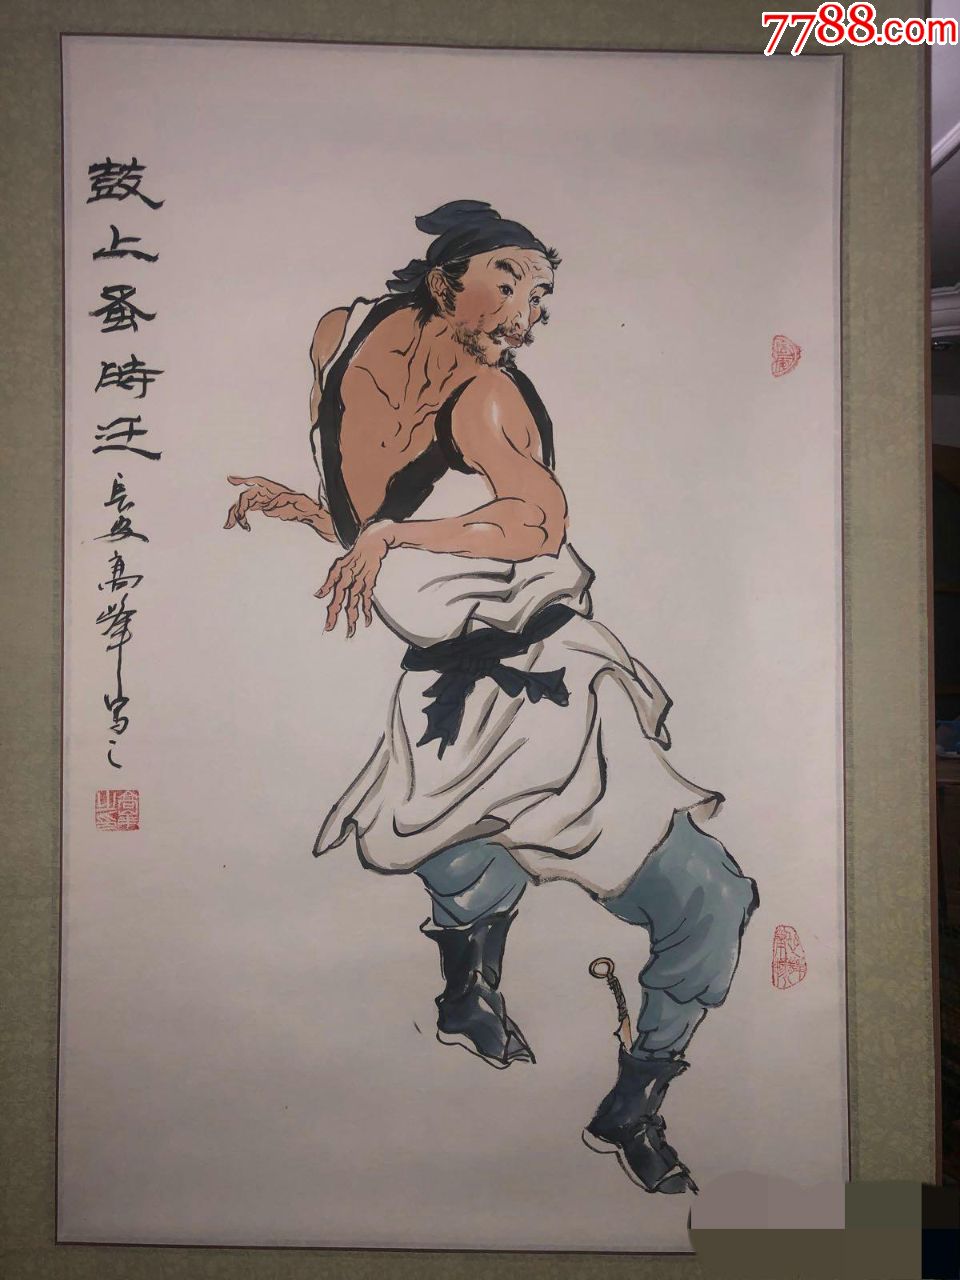 7788.com
鼓上蚤時迁
長安高峰写之